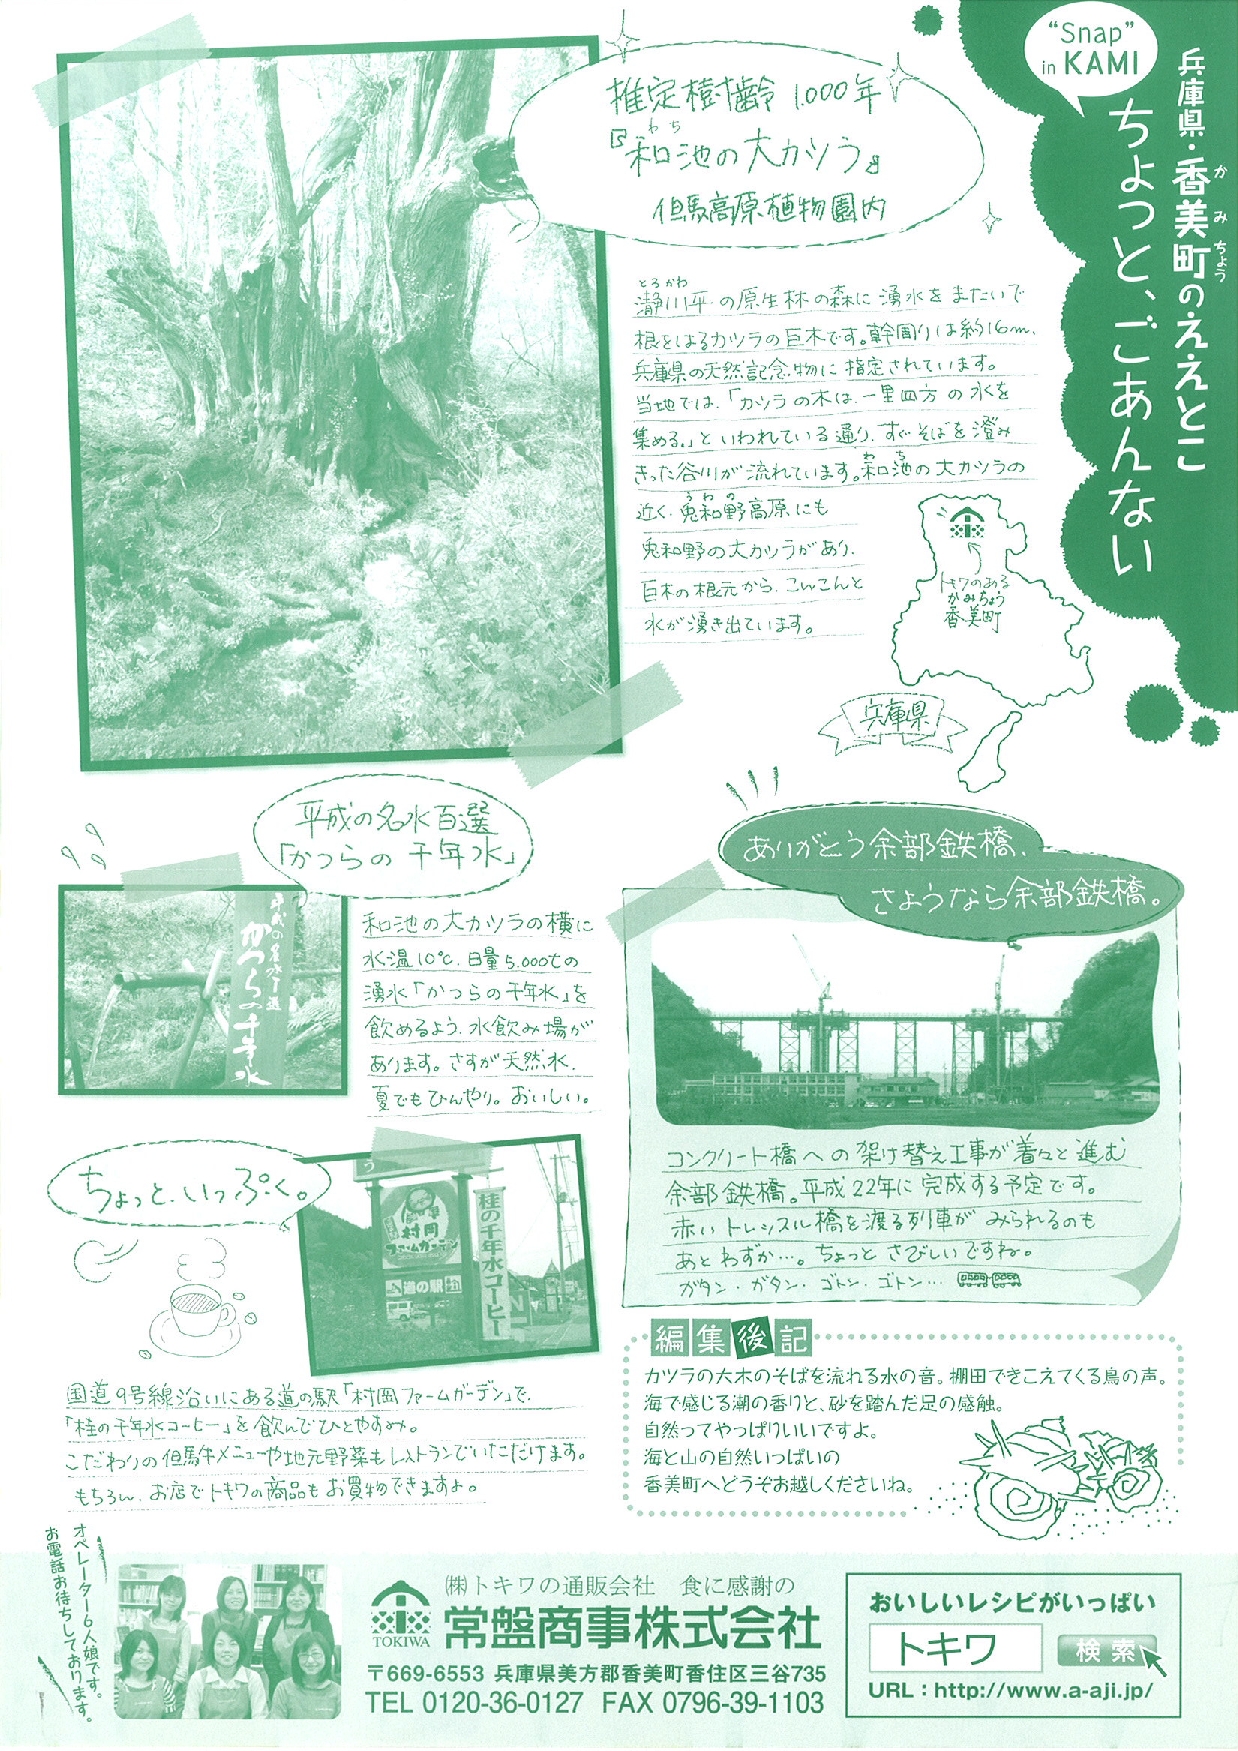 “Snap”
in KAMI
兵庫県・香美町のええとこ
かみちょう
ちょっと、ごあんない
推定樹齢 1,000年
わち
『和池の大カツラ』
但馬高原植物園内
とろかわ
瀞川平の原生林の森に湧水をまたいで
根をはるカツラの巨木です。幹周りは約16m、
兵庫県の天然記念物に指定されています。
当地では、「カツラの木は、一里四方の水を
集める。」といわれている通り、すぐそばを澄み
きった谷川が流れています。和池の大カツラの
わち
近く、兎和野高原にも
うわの
兎和野の大カツラがあり、
巨木の根元から、こんこんと
水が湧き出ています。
トキワのある
かみちょう
香美町
兵庫県
平成の名水百選
「かつらの千年水」
平成の名水百選
かつらの千年水
和池の大カツラの横に
水温10℃、日量5,000tの
湧水「かつらの千年水」を
飲めるよう、水飲み場が
あります。さすが天然水、
夏でもひんやり。おいしい。
ありがとう余部鉄橋、
さようなら余部鉄橋。
コンクリート橋への架け替え工事が着々と進む
余部鉄橋。平成22年に完成する予定です。
赤いトレッスル橋を渡る列車がみられるのも
あとわずか…。ちょっとさびしいですね。
ガタン・ガタン・ゴトン・ゴトン…
ちょっと、いっぷく。
村岡
ファームガーデン
道の駅
桂の千年水コーヒー
国道9号線沿いにある道の駅「村岡ファームガーデン」で、
「桂の千年水コーヒー」を飲んでひとやすみ。
こだわりの但馬牛メニューや地元野菜もレストランでいただけます。
もちろん、お店でトキワの商品もお買物できますよ。
編集後記
カツラの大木のそばを流れる水の音。棚田できこえてくる鳥の声。
海で感じる潮の香りと、砂を踏んだ足の感触。
自然ってやっぱりいいですよ。
海と山の自然いっぱいの
香美町へどうぞお越しくださいね。
オペレーター6人娘です。
お電話お待ちしております。
TOKIWA
㈱トキワの通販会社 食に感謝の
常盤商事株式会社
〒669-6553 兵庫県美方郡香美町香住区三谷735
TEL 0120-36-0127 FAX 0796-39-1103
おいしいレシピがいっぱい
トキワ 検索
URL：http://www.a-aji.jp/